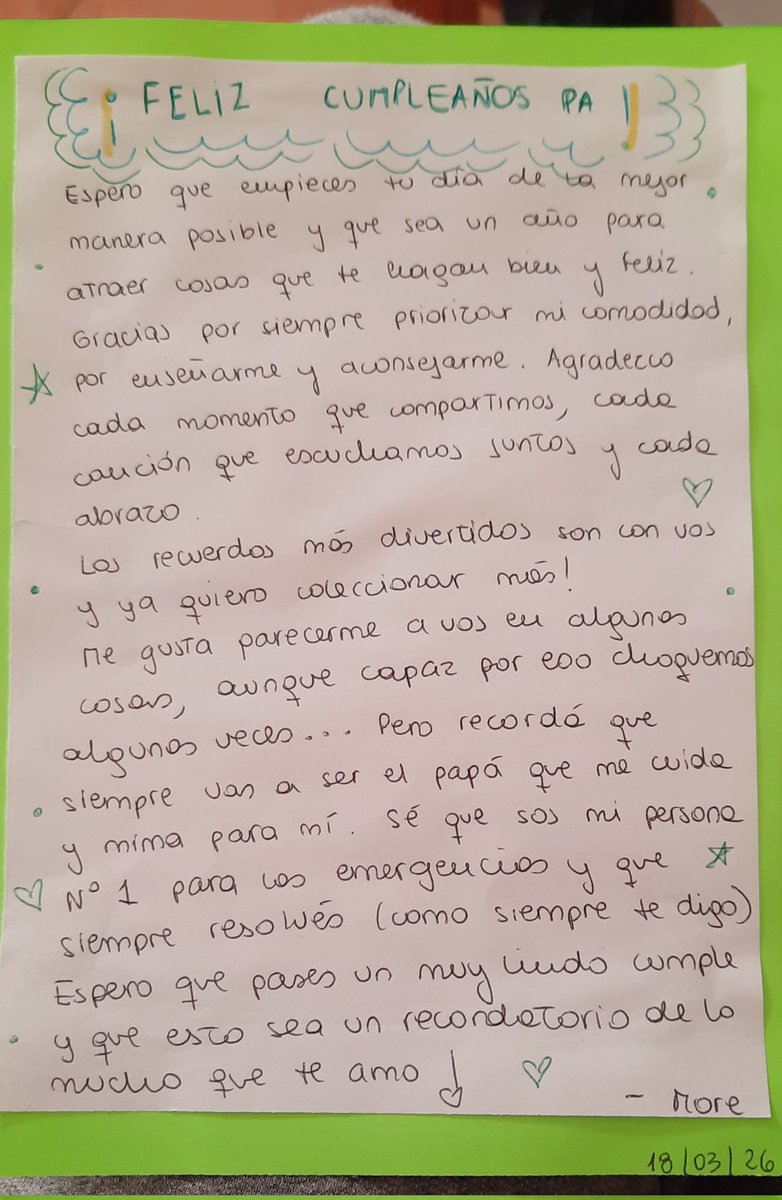 ¡FELIZ CUMPLEAÑOS PA!
Espero que empieces tu día de la mejor
manera posible y que sea un año para
atraer cosas que te hagan bien y feliz.
Gracias por siempre priorizar mi comodidad,
por enseñarme y aconsejarme. Agradezco
cada momento que compartimos, cada
canción que escuchamos juntos y cada
abrazo.
Los recuerdos más divertidos son con vos
y ya quiero coleccionar más!
Me gusta parecerme a vos en algunas
cosas, aunque capaz por eso choquemos
algunas veces... Pero recordá que
siempre vas a ser el papá que me cuida
y mima para mí. Sé que sos mi persona
Nº 1 para las emergencias y que
siempre resolvés (como siempre te digo)
Espero que pases un muy lindo cumple
y que esto sea un recordatorio de lo
mucho que te amo!
- More
18/03/26